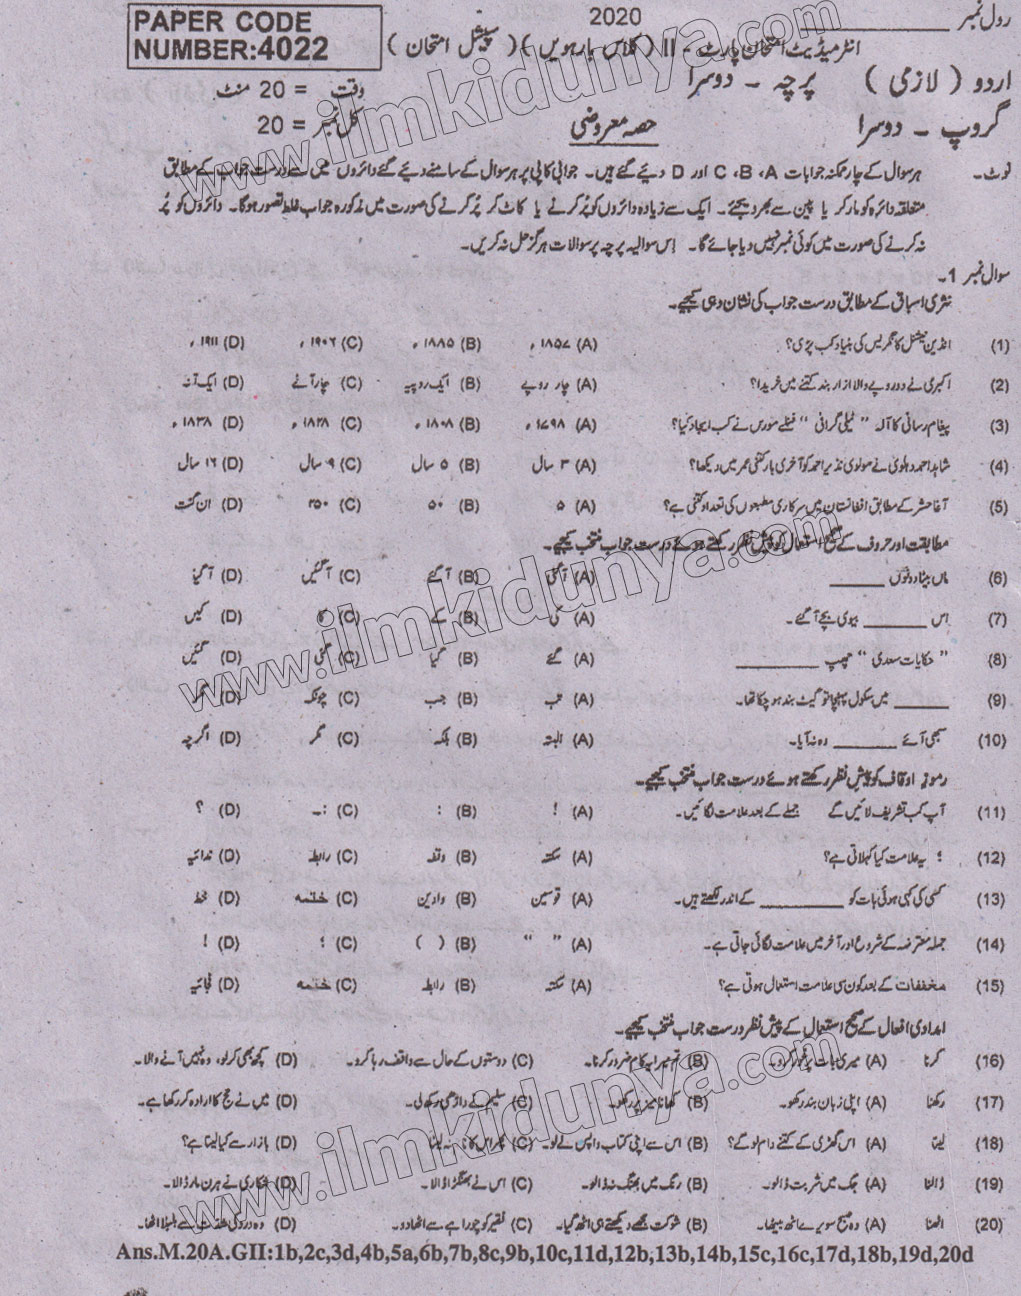 PAPER CODE
NUMBER:4022
2020
رول نمبر
انٹر میڈیٹ امتحان پارٹ - II (کلاس بارھویں) (سپیشل امتحان)
اردو (لازمی) پرچہ - دوسرا
وقت = 20 منٹ
گروپ - دوسرا
حصہ معروضی
کل نمبر = 20
نوٹ - ہر سوال کے چار ممکنہ جوابات C ،B ،A اور D دیئے گئے ہیں۔ جوابی کاپی پر ہر سوال کے سامنے دیئے گئے دائروں میں سے درست جواب کے مطابق
متعلقہ دائرہ کو مارکر یا پین سے بھر دیجئے۔ ایک سے زیادہ دائروں کو پُر کرنے یا کاٹ کر پُر کرنے کی صورت میں مذکورہ جواب غلط تصور ہوگا۔ دائروں کو پُر
نہ کرنے کی صورت میں کوئی نمبر نہیں دیا جائے گا۔ اس سوالیہ پرچہ پر سوالات ہرگز حل نہ کریں۔
سوال نمبر 1-
نثری اسباق کے مطابق درست جواب کی نشان دہی کیجیے۔
(1) انڈین نیشنل کانگریس کی بنیاد کب پڑی؟ (A) ۱۸۵۷ء (B) ۱۸۸۵ء (C) ۱۹۰۶ء (D) ۱۹۱۱ء
(2) اکبری نے دو روپے والا ازار بند کتنے میں خریدا؟ (A) چار روپے (B) ایک روپیہ (C) چار آنے (D) ایک آنہ
(3) پیغام رسانی کا آلہ "ٹیلی گرافی" فنلے مورس نے کب ایجاد کیا؟ (A) ۱۷۹۸ء (B) ۱۸۰۸ء (C) ۱۸۲۸ء (D) ۱۸۳۸ء
(4) شاہد احمد دہلوی نے مولوی نذیر احمد کو آخری بار کتنی عمر میں دیکھا؟ (A) ۳ سال (B) ۵ سال (C) ۹ سال (D) ۱۶ سال
(5) آغا حشر کے مطابق افغانستان میں سرکاری مطبعوں کی تعداد کتنی ہے؟ (A) ۵ (B) ۵۰ (C) ۲۵۰ (D) ان گنت
مطابقت اور حروف کے صحیح استعمال کو پیش نظر رکھتے ہوئے درست جواب منتخب کیجیے۔
(6) ماں بیٹا دونوں ______ (A) آگئی (B) آگئے (C) آگئیں (D) آگیا
(7) اس ______ بیوی بچے آگئے۔ (A) کی (B) کے (C) کا (D) کیں
(8) "حکایات سعدی" چھپ ______ (A) گئے (B) گیا (C) گئی (D) گئیں
(9) ______ میں سکول پہنچا تو گیٹ بند ہو چکا تھا۔ (A) تب (B) جب (C) چونکہ (D)
(10) سبھی آئے ______ وہ نہ آیا۔ (A) البتہ (B) بلکہ (C) مگر (D) اگرچہ
رموز اوقاف کو پیش نظر رکھتے ہوئے درست جواب منتخب کیجیے۔
(11) آپ کب تشریف لائیں گے جملے کے بعد علامت لگائیں۔ (A) ! (B) : (C) :- (D) ؟
(12) ؛ یہ علامت کیا کہلاتی ہے؟ (A) سکتہ (B) وقفہ (C) رابطہ (D) ندائیہ
(13) کسی کی کہی ہوئی بات کو ______ کے اندر لکھتے ہیں۔ (A) قوسین (B) واوین (C) ختمہ (D) خط
(14) جملہ معترضہ کے شروع اور آخر میں علامت لگائی جاتی ہے۔ (A) " " (B) ( ) (C) ؛ (D) !
(15) مخففات کے بعد کون سی علامت استعمال ہوتی ہے؟ (A) سکتہ (B) رابطہ (C) ختمہ (D) فجائیہ
امدادی افعال کے صحیح استعمال کے پیش نظر درست جواب منتخب کیجیے۔
(16) کرنا (A) میری بات پر غور کرو۔ (B) تم میرا یہ کام ضرور کرنا۔ (C) دوستوں کے حال سے واقف رہا کرو۔ (D) کچھ بھی کرلو، وہ نہیں آنے والا۔
(17) رکھنا (A) اپنی زبان بند رکھو۔ (B) کھانا میز پر رکھو۔ (C) سلیم نے داڑھی رکھ لی۔ (D) میں نے حج کا ارادہ کر رکھا ہے۔
(18) لینا (A) اس گھڑی کے کتنے دام لو گے؟ (B) اس سے اپنی کتاب واپس لے لو۔ (C) پھر اس کا نام نہ لینا (D) بازار سے کیا لینا ہے؟
(19) ڈالنا (A) جگ میں شربت ڈالو۔ (B) رنگ میں بھنگ نہ ڈالو۔ (C) اس نے بھنگڑا ڈالا۔ (D) شکاری نے ہرن مار ڈالا۔
(20) اٹھنا (A) وہ صبح سویرے اٹھ بیٹھا۔ (B) شوکت مجھے دیکھتے ہی اٹھ گیا۔ (C) فقیر کو چوراہے سے اٹھا دو۔ (D) وہ درد کی شدت سے بلبلا اٹھا۔
Ans.M.20A.GII:1b,2c,3d,4b,5a,6b,7b,8c,9b,10c,11d,12b,13b,14b,15c,16c,17d,18b,19d,20d
www.ilmkidunya.com
www.ilmkidunya.com
www.ilmkidunya.com